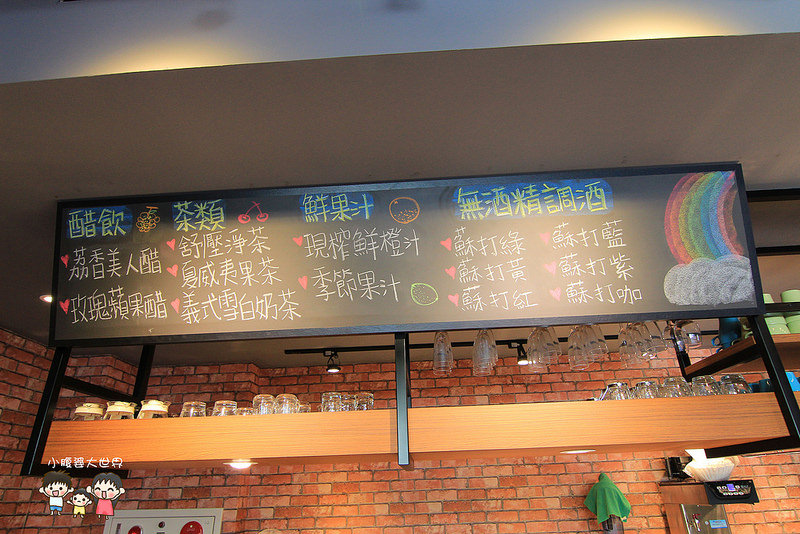 醋飲
荔香美人醋
玫瑰蘋果醋
茶類
舒壓淨茶
夏威夷果茶
義式雪白奶茶
鮮果汁
現榨鮮橙汁
季節果汁
無酒精調酒
蘇打綠
蘇打黃
蘇打紅
蘇打藍
蘇打紫
蘇打咖
小腹婆大世界